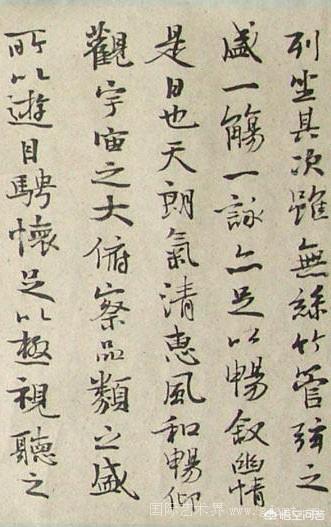 列坐其次雖無絲竹管弦之
盛一觴一詠亦足以暢敘幽情
是日也天朗氣清惠風和暢仰
觀宇宙之大俯察品類之盛
所以遊目騁懷足以極視聽之
国际艺术界
悟空问答